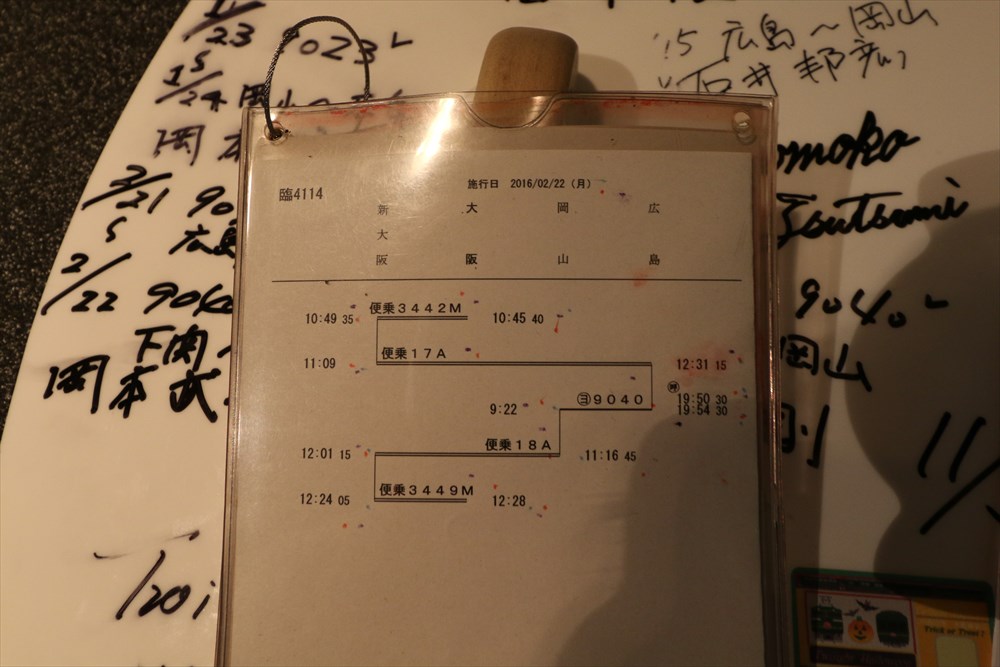 11/23 1023レ
'15 広島〜岡山
石井 邦彦
omoko
Tsutsumi
岡本
2/21 90
広島
2/22 9040
9040レ
下関〜
岡山
岡本 武
11/
1/20
臨4114
施行日 2016/02/22 (月)
新大阪 大阪 岡山 広島
便乗3442M
10:49 35 10:45 40
便乗17A
11:09 12:31 15
㋵9040
㋵ 19:50 30
9:22 19:54 30
便乗18A
12:01 15 11:16 45
便乗3449M
12:24 05 12:28
Trick or Treat !